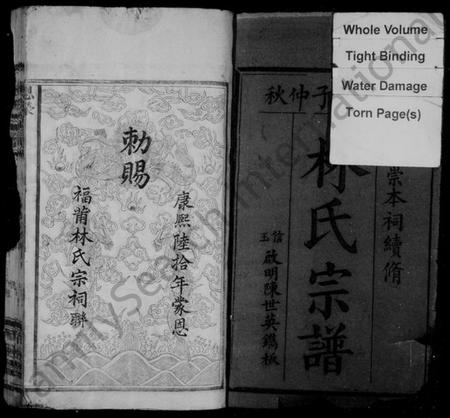 Whole Volume
Tight Binding
Water Damage
Torn Page(s)
子仲秋
林氏宗譜
崇本祠續脩
啟明陳世英鐫板
康熙陸拾年蒙恩
勅賜
福莆林氏宗祠聯
FamilySearch International